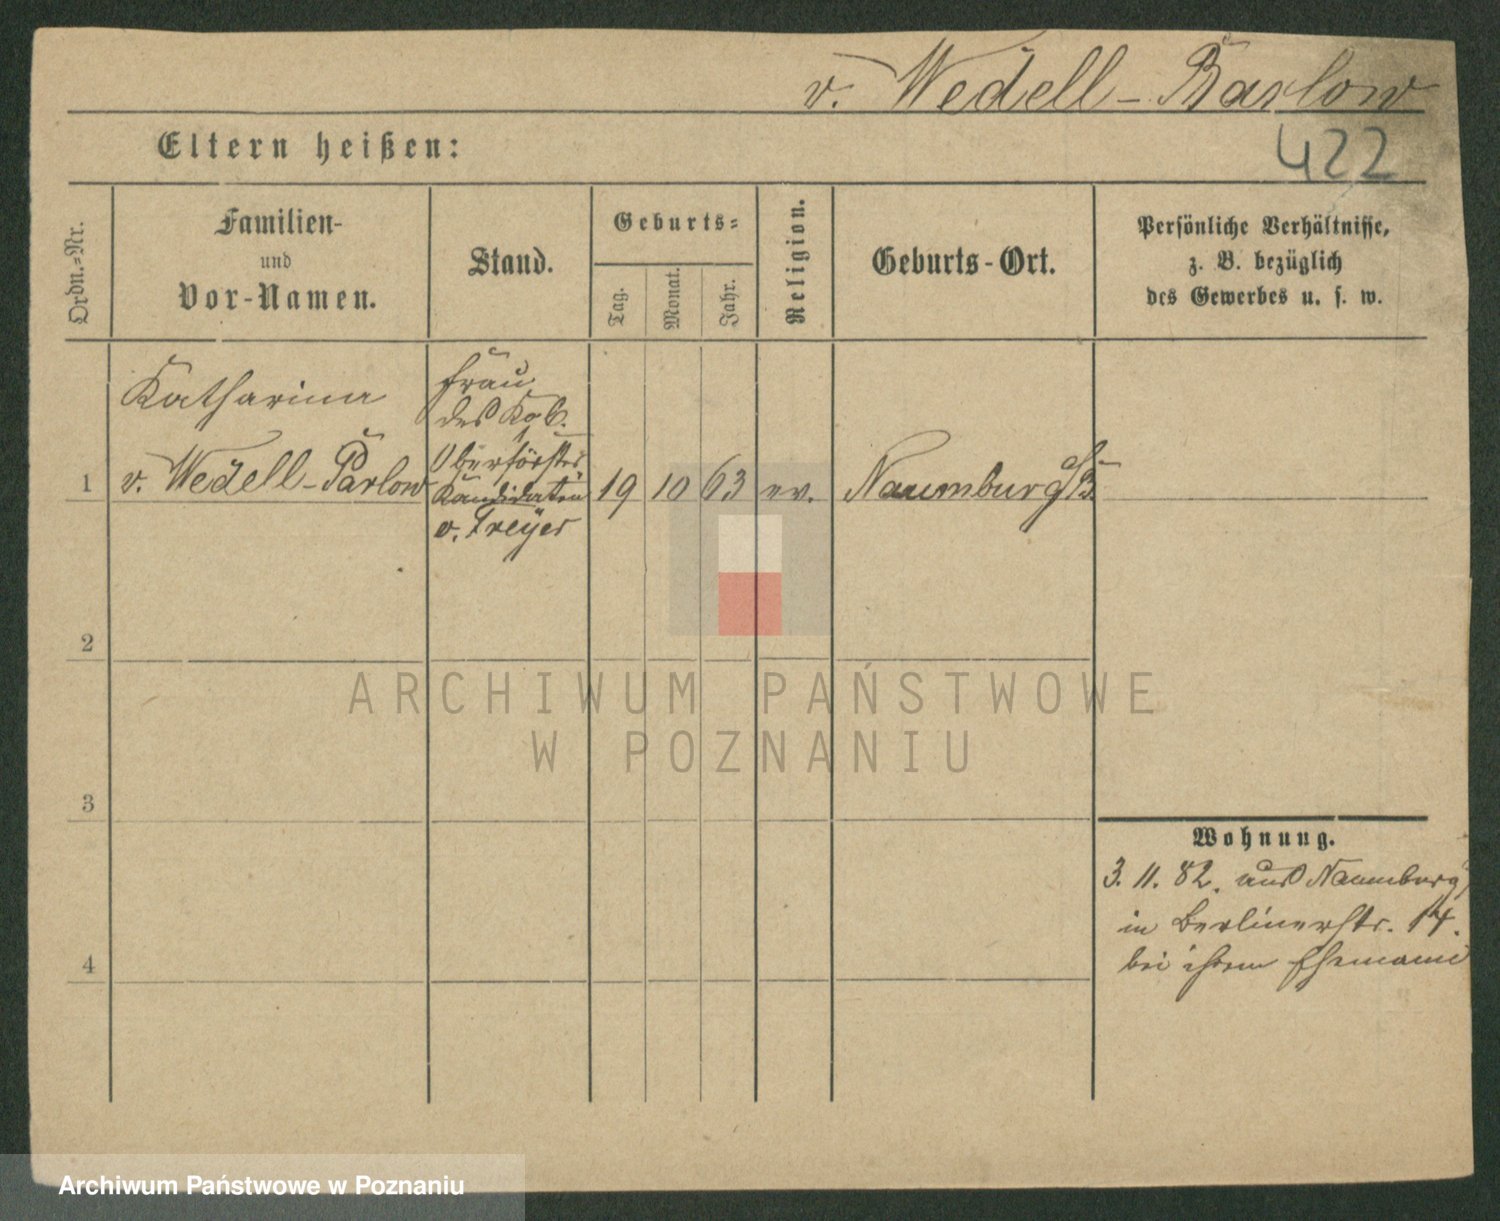 v. Wedell-Parlow
422
Eltern heißen:
Ordn.-Nr.
Familien-
und
Vor-Namen.
Stand.
Geburts-
Tag.
Monat.
Jahr.
Religion.
Geburts-Ort.
Persönliche Verhältnisse,
z. B. bezüglich
des Gewerbes u. s. w.
Katharina
v. Wedell-Parlow
Frau
des Kgl.
Oberförster
Kandidaten
v. Freyer
1
19 10 63 ev. Naumburg
2
3
4
Wohnung.
3. 11. 82. aus Naumburg
in Berlinerstr. 14.
bei ihrem Ehemann
ARCHIWUM PAŃSTWOWE
W POZNANIU
Archiwum Państwowe w Poznaniu